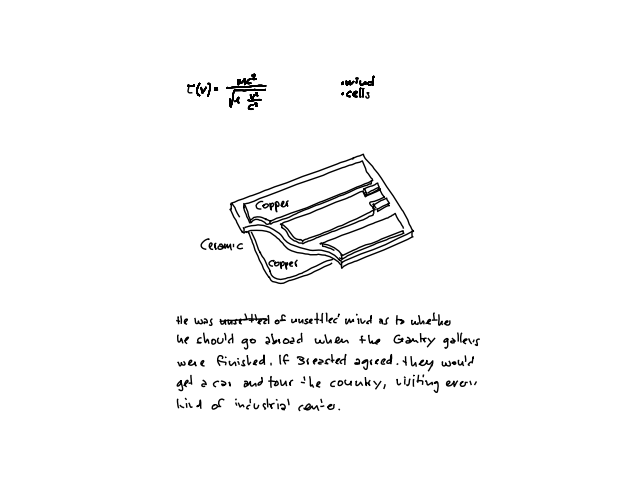 E(v) = mc² / √1 v²/c²
• mind
• cells
Copper
Ceramic
Copper
He was unsettled of unsettled mind as to whether
he should go abroad when the Gantry gallery
were finished. If Breasted agreed. They would
get a car and tour the country, visiting every
kind of industrial center.